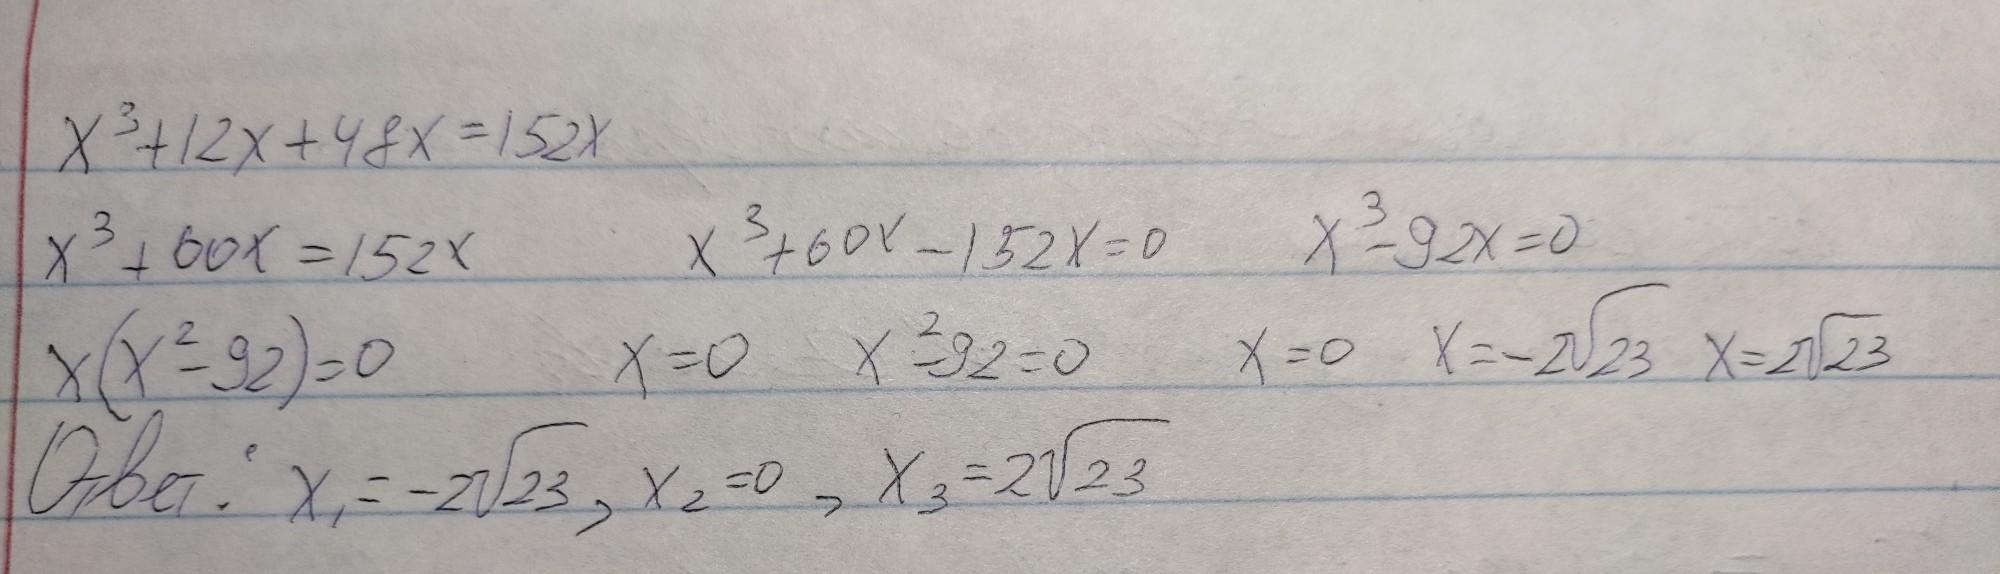 x³+12x+48x=152x
x³+60x=152x x³+60x-152x=0 x³-92x=0
x(x²-92)=0 x=0 x²-92=0 x=0 x=-2√23 x=2√23
Ответ: x₁=-2√23, x₂=0, x₃=2√23